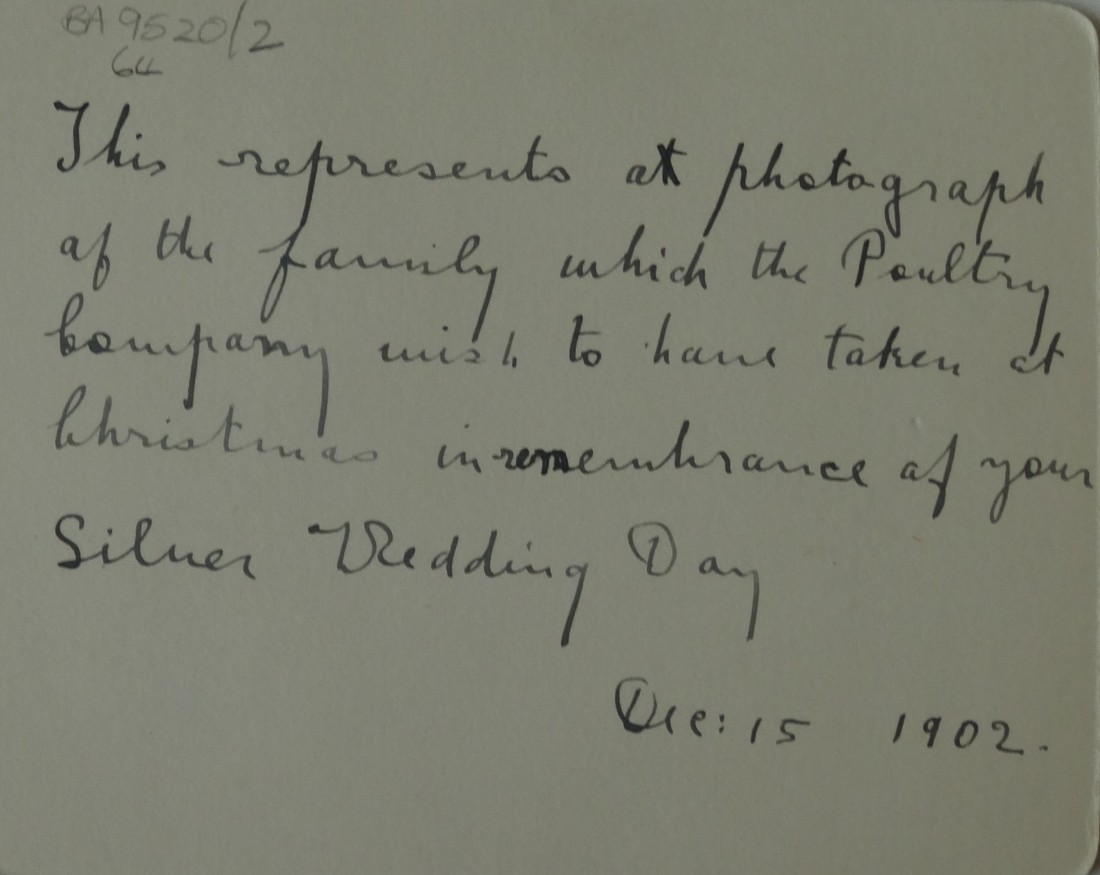 BA 9520/2
64
This represents a photograph
of the family which the Poultry
Company wish to have taken at
Christmas in remembrance of your
Silver Wedding Day
Dec: 15 1902.